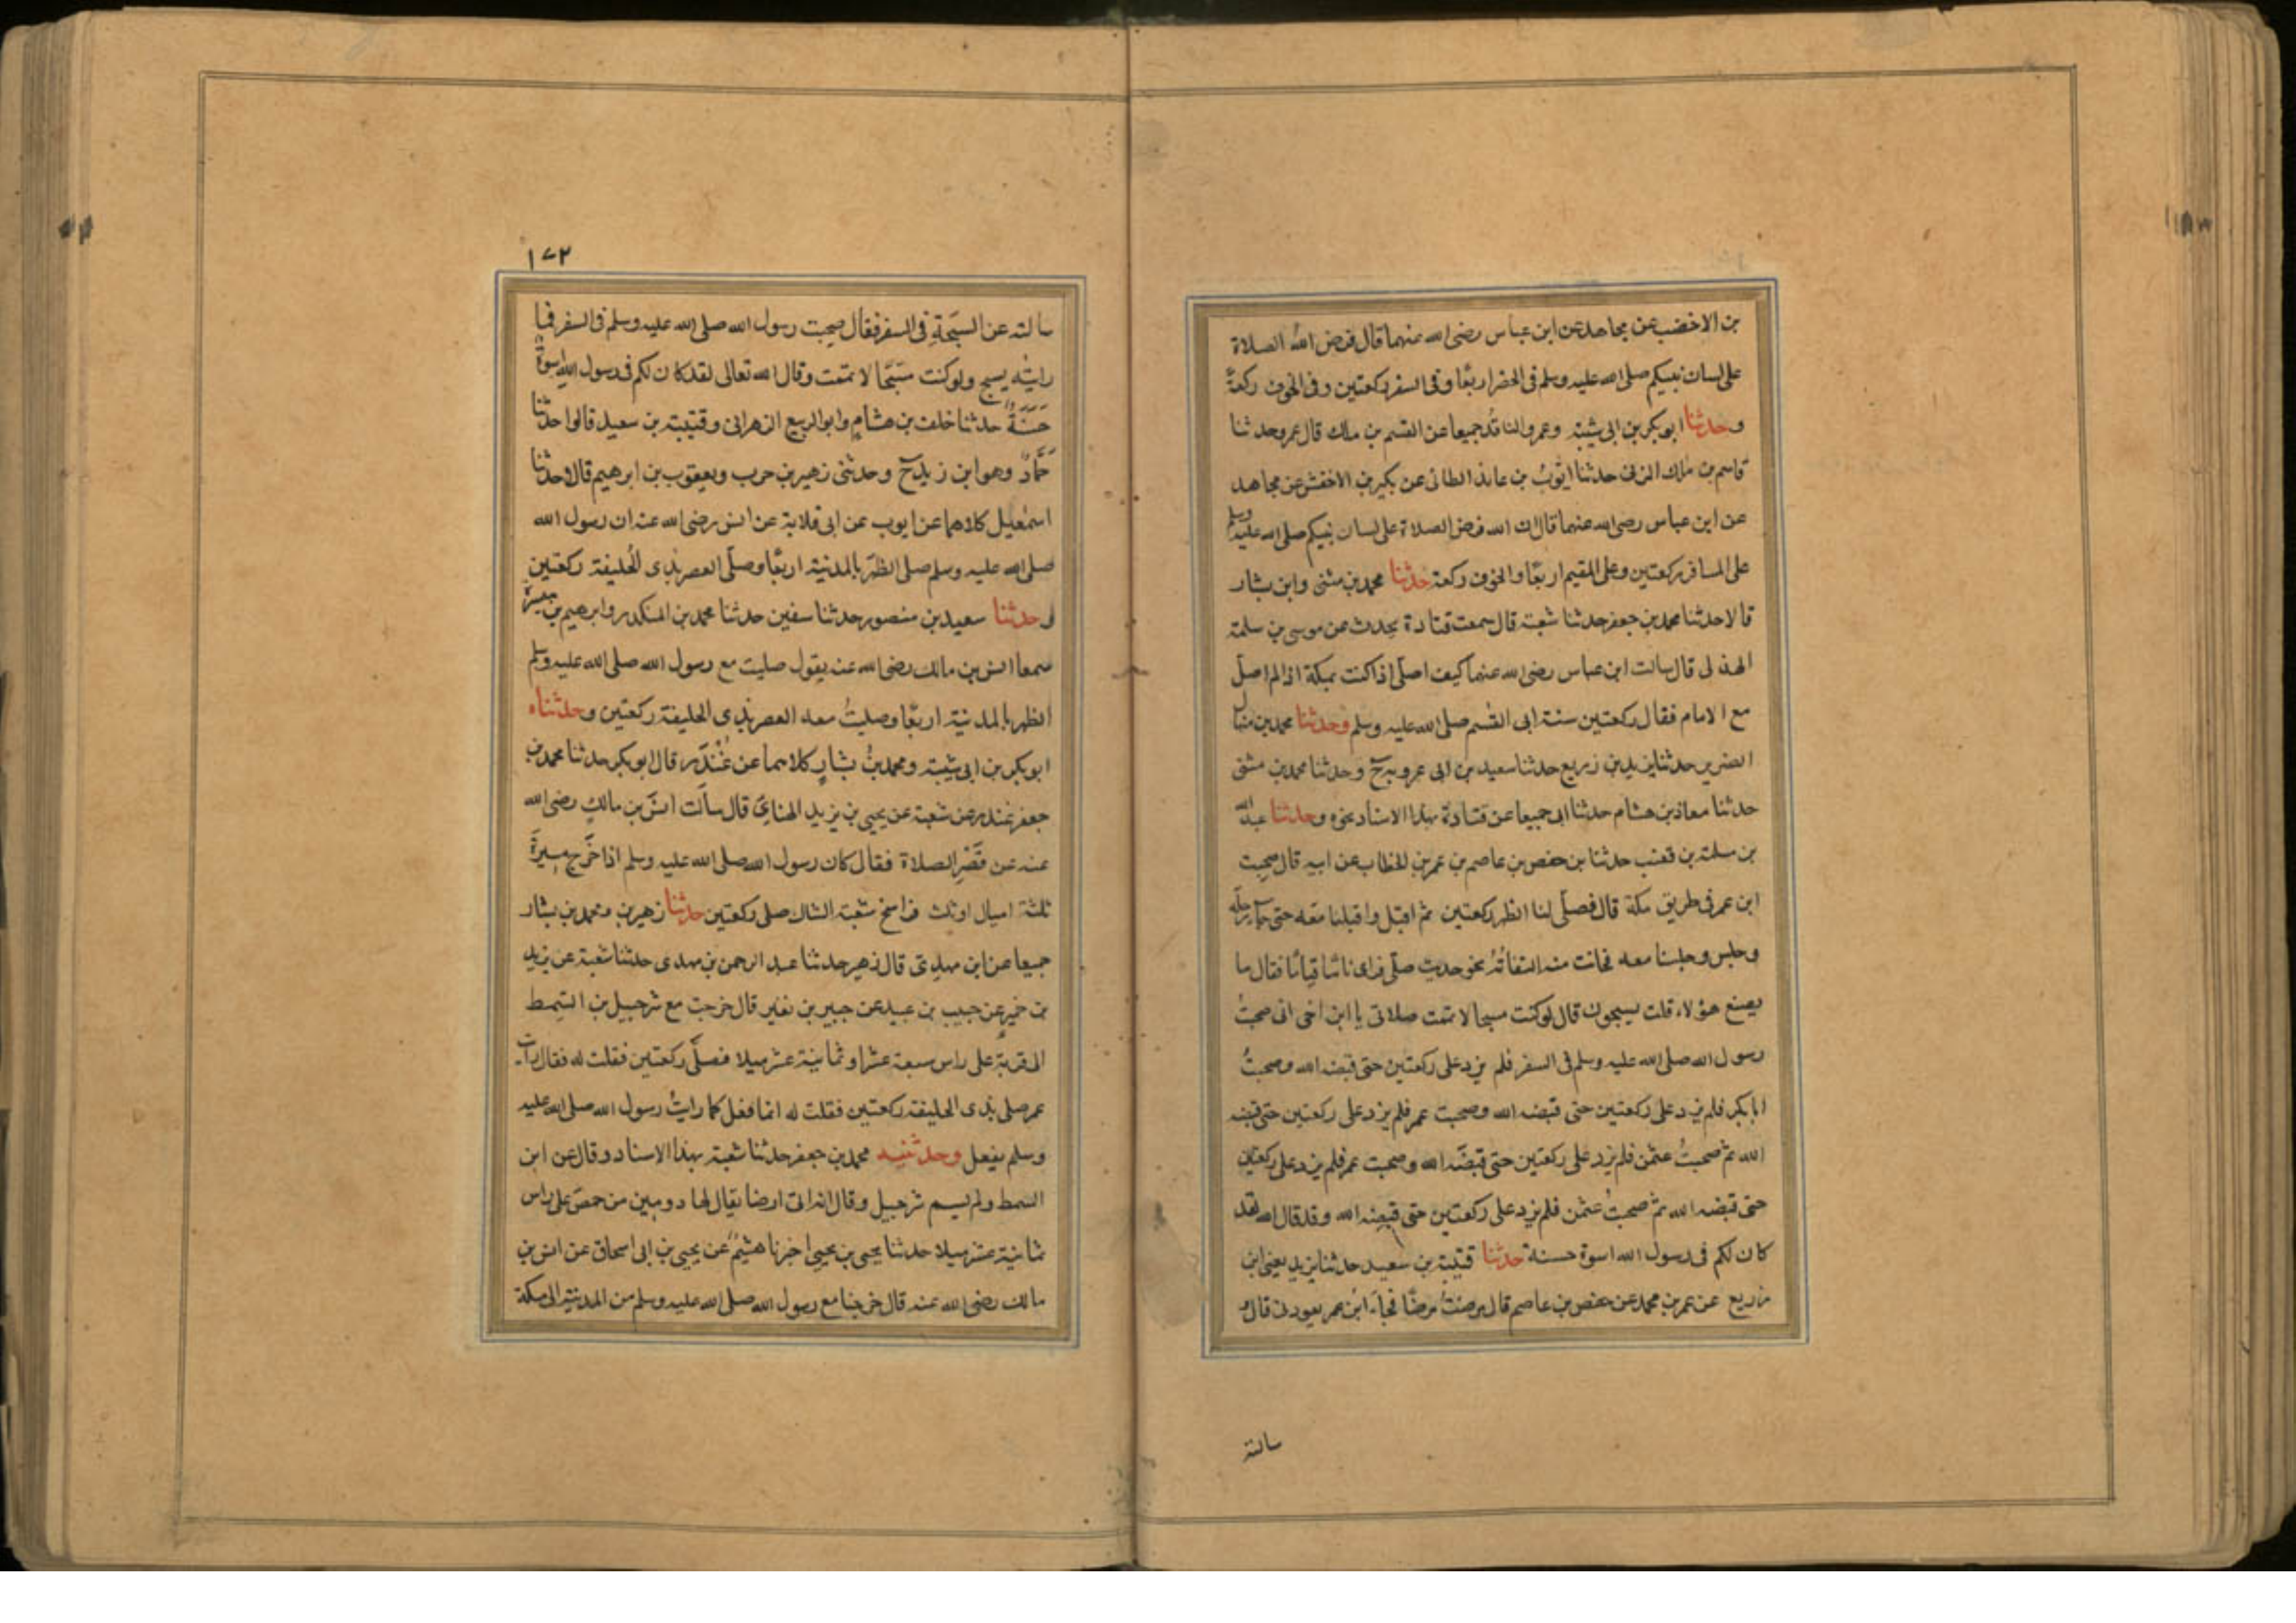 بن الاخضب عن مجاهد عن ابن عباس رضى الله عنهما قال فرض الله الصلاة
على لسان نبيكم صلى الله عليه وسلم فى الحضر اربعًا وفى السفر ركعتين وفى الخوف ركعةً
وحدثنا ابو بكر بن ابى شيبة وعمرو الناقدُ جميعا عن القسم بن مالك قال عمرو حدثنا
قاسم بن مالك المزنى حدثنا ايوبُ بن عائذ الطائى عن بكير بن الاخنش عن مجاهد
عن ابن عباس رضى الله عنهما قال ان الله فرض الصلاة على لسان نبيكم صلى الله عليه وسلم
على المسافر ركعتين وعلى المقيم اربعًا والخوف ركعة حدثنا محمد بن مثنى وابن بشار
قالا حدثنا محمد بن جعفر حدثنا شعبة قال سمعت قتادة يحدث عن موسى بن سلمة
الهذلى قال سالت ابن عباس رضى الله عنهما كيف اصلى اذا كنت بمكة اذا لم اصل
مع الامام فقال ركعتين سنة ابى القسم صلى الله عليه وسلم وحدثنا محمد بن منهال
الضرير حدثنا يزيد بن زريع حدثنا سعيد بن ابى عروبة ح وحدثنا محمد بن مثنى
حدثنا معاذ بن هشام حدثنا ابى جميعا عن قتادة بهذا الاسناد نحوه وحدثنا عبد الله
بن سلمة بن قعنب حدثنا بن حفص بن عاصم بن عمر بن الخطاب عن ابيه قال صحبت
ابن عمر فى طريق مكة قال فصلّى لنا الظهر ركعتين ثم اقبل واقبلنا معه حتى جاء رحله
وجلس وجلسنا معه فحانت منه التفاتةٌ نحو حديث صلّى فراى ناسًا قيامًا فقال ما
يصنع هؤلاء قلت يسبحون قال لو كنت مسبحا لاتممت صلاتى يا ابن اخى انى صحبتُ
رسول الله صلى الله عليه وسلم فى السفر فلم يزد على ركعتين حتى قبضه الله وصحبتُ
ابا بكر فلم يزد على ركعتين حتى قبضه الله وصحبت عمر فلم يزد على ركعتين حتى قبضه
الله ثم صحبتُ عثمن فلم يزد على ركعتين حتى قبضه الله وصحبت عمر فلم يزد على ركعتين
حتى قبضه الله ثم صحبتُ عثمن فلم يزد على ركعتين حتى قبضه الله وقد قال الله لقد
كان لكم فى رسول الله اسوة حسنة حدثنا قتيبة بن سعيد حدثنا يزيد يعنى ابن
زريع عن عمر بن محمد عن حفص بن عاصم قال مرضتُ مرضًا فجاءَ ابن عمر يعودنى قال و
سالته
١٧٢
سالته عن السبحةِ فى السفر فقال صحبت رسول الله صلى الله عليه وسلم فى السفر فما
رايته يسبح ولو كنت مسَبّحًا لاتممت وقال الله تعالى لقد كان لكم فى رسول الله اسوةٌ
حَسَنَةٌ حدثنا خلف بن هشامٍ وابو الربيع الزهرانى وقتيبة بن سعيد قالوا حدثنا
حَمّادٌ وهو ابن زيدح وحدثنى زهير بن حرب ويعقوب بن ابرهيم قالا حدثنا
اسمٰعيل كلاهما عن ايوب عن ابى قلابة عن انس رضى الله عنه ان رسول الله
صلى الله عليه وسلم صلى الظهرَ بالمدينة اربعًا وصلّى العصر بذى الحُليفة ركعتين
وحدثنا سعيد بن منصور حدثنا سفين حدثنا محمد بن المنكدر وابرهيم بن ميسرة
سمعا انس بن مالك رضى الله عنه يقول صليت مع رسول الله صلى الله عليه وسلم
الظهر بالمدينة اربعًا وصليتُ معه العصر بذى الحليفة ركعتين وحدثناه
ابو بكر بن ابى شيبة ومحمد بنُ بشارٍ كلاهما عن غُنْدَر قال ابو بكر حدثنا محمد بن
جعفر غندر عن شعبة عن يحيى بن يزيد الهنايَ قال سألت انسَ بن مالكٍ رضى الله
عنه عن قَصْرِ الصلاة فقال كان رسول الله صلى الله عليه وسلم اذا خَرَج مسيرةَ
ثلثة اميال او ثلث فراسخ شعبة الشاك صلى ركعتين حدثنا زهير بن ومحمد بن بشار
جميعا عن ابن مهدىّ قال زهير حدثنا عبد الرحمن بن مهدى حدثنا شعبة عن يزيد
بن خمير عن حبيب بن عبيد عن جبير بن نفير قال خرجت مع شرحبيل بن السَّمط
الى قرية على راس سبعة عشر او ثمانية عشر ميلا فصلّى ركعتين فقلت له فقال رايت
عمر صلى بذى الحليفة ركعتين فقلت له انما افعل كما رايتُ رسول الله صلى الله عليه
وسلم يفعل وحدثنيه محمد بن جعفر حدثنا شعبة بهذا الاسناد وقال عن ابن
السمط ولم يسم شرحبيل وقال انه اتى ارضا يقال لها دومين من حمصَ على راس
ثمانية عشر ميلا حدثنا يحيى بن يحيى اخبرنا هشيمٌ عن يحيى بن ابى اسحاق عن انس بن
مالك رضى الله عنه قال خرجنا مع رسول الله صلى الله عليه وسلم من المدينة الى مكة